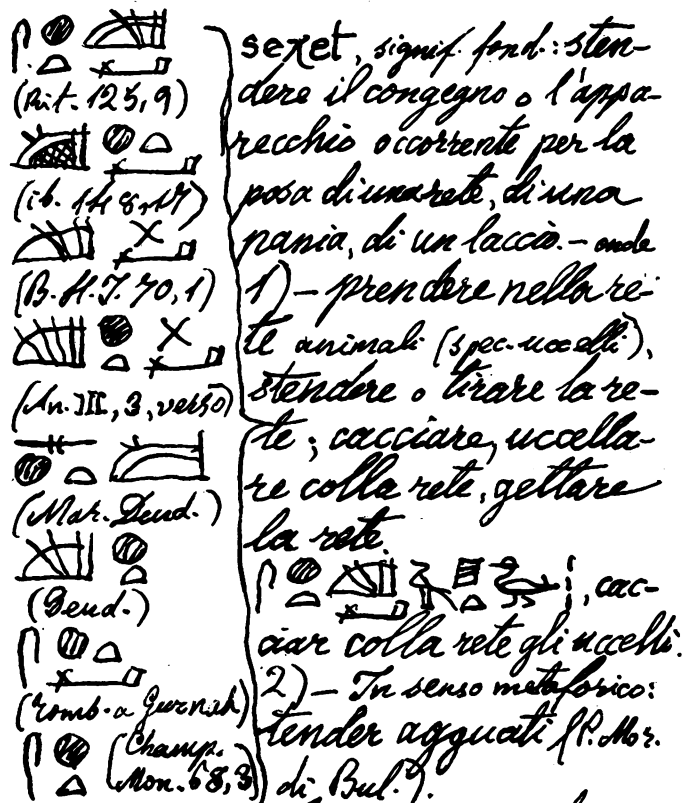 (Rit. 125, 9)
(ib. 148, 17)
(B. H. I. 70, 1)
(An. III, 3, verso)
(Mar. Dend.)
(Dend.)
(tomb. a Gurnah)
(Champ.
Mon. 68, 3)
seχet, signif. fond.: sten-
dere il congegno o l'appa-
recchio occorrente per la
posa di una rete, di una
pania, di un laccio. – onde
1) – prendere nella re-
te animali (spec. uccelli),
stendere o tirare la re-
te; cacciare, uccella-
re colla rete, gettare
la rete.
, cac-
ciar colla rete gli uccelli.
2) – In senso metaforico:
tender agguati (P. Mor.
di Bul.).